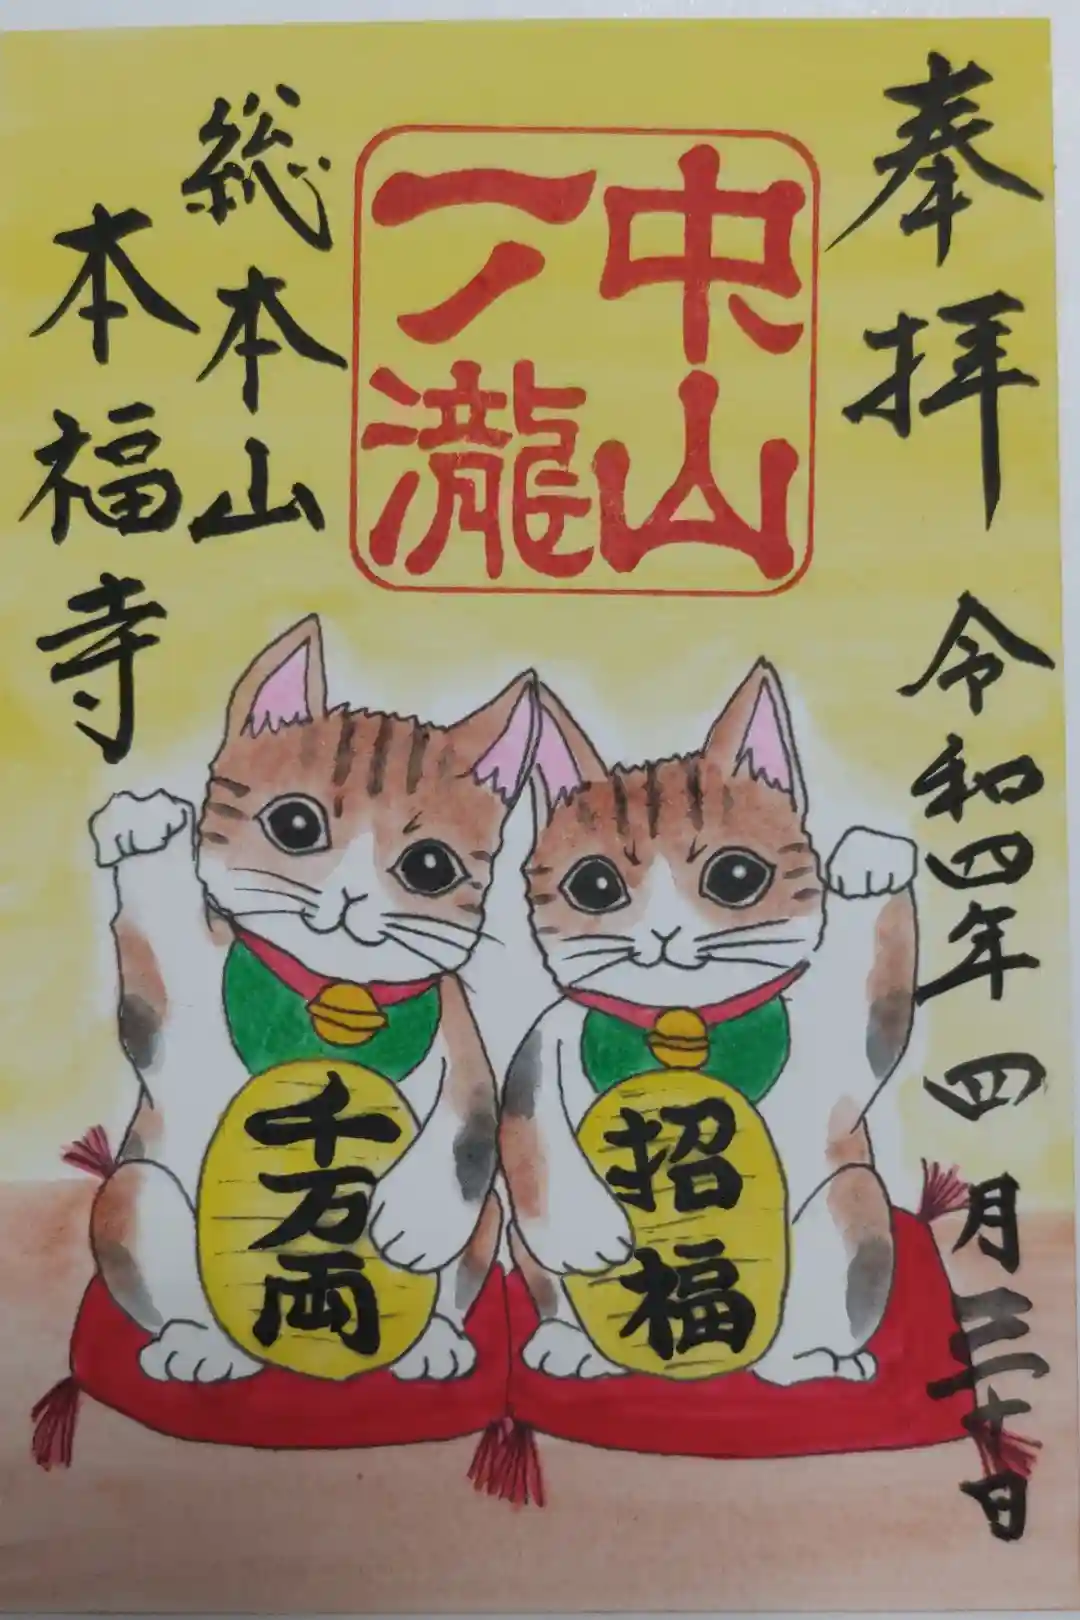 奉拝
令和四年四月三十日
中山
一ノ瀧
総本山
本福寺
招福
千万両